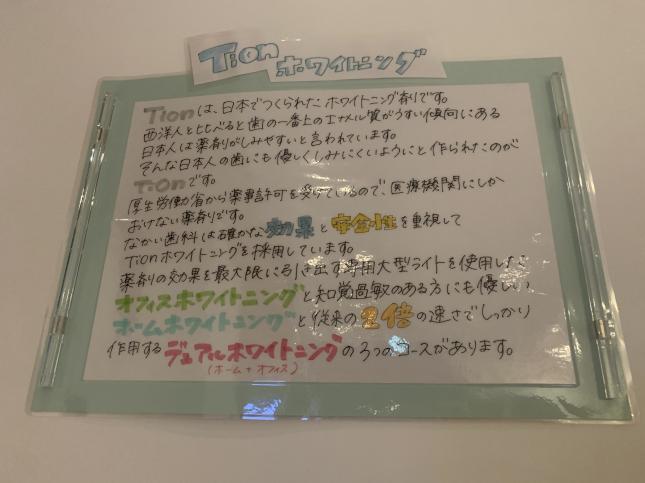 Tion ホワイトニング
Tionは、日本でつくられたホワイトニング剤です。
西洋人と比べると歯の一番上のエナメル質がうすい傾向にある
日本人は薬剤がしみやすいと言われています。
そんな日本人の歯にも優しくしみにくいようにと作られたのが
TiOnです。
厚生労働省から薬事許可を受けているので、医療機関にしか
おけない薬剤です。
なかい歯科は確かな効果と安全性を重視して
Tionホワイトニングを採用しています。
薬剤の効果を最大限に引き出す専用大型ライトを使用した
オフィスホワイトニングと知覚過敏のある方にも優しい
ホームホワイトニングと従来の2倍の速さでしっかり
作用するデュアルホワイトニングの3つのコースがあります。
(ホーム+オフィス)